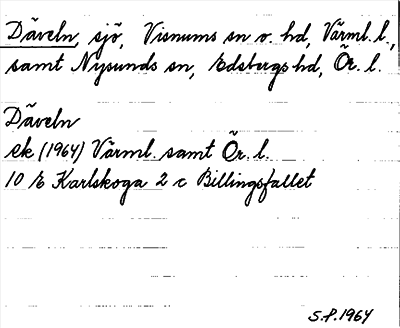 Däveln, sjö, Visnums sn o. hd, Värml. l.,
samt Nysunds sn, Edsbergs hd, Ör. l.
Däveln
ek (1964) Värml. samt Ör. l.
10 E Karlskoga 2 c Billingsfallet
S.P. 1964